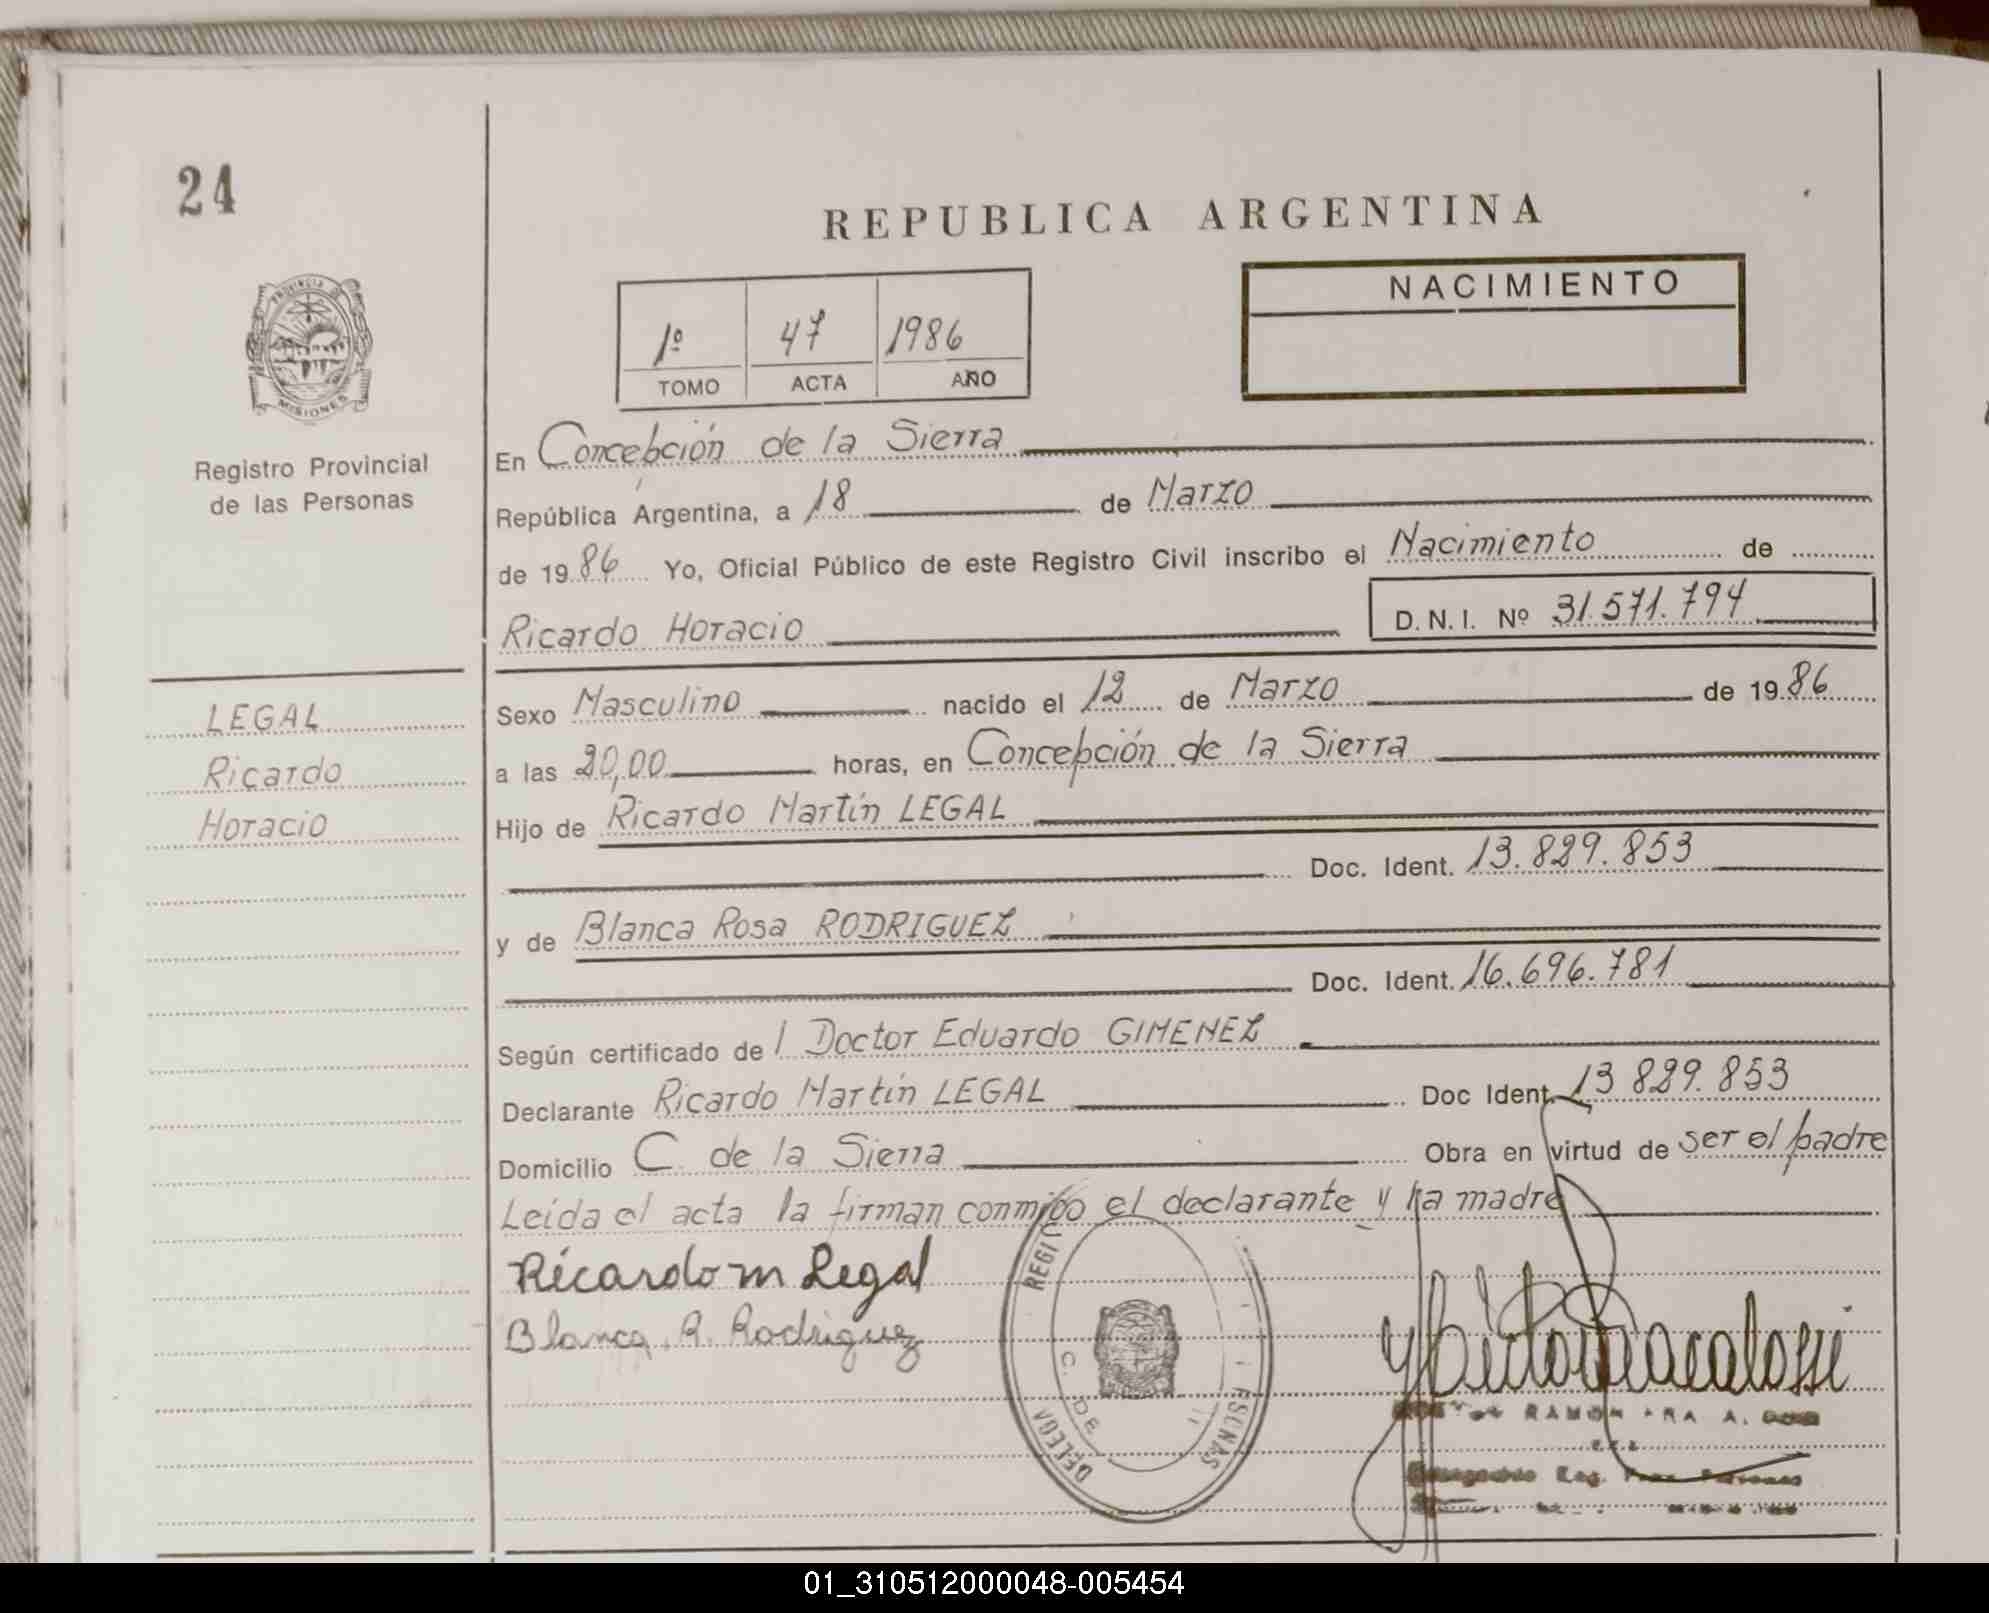 24
REPUBLICA ARGENTINA
NACIMIENTO
1º 47 1986
TOMO ACTA AÑO
PROVINCIA DE MISIONES
Registro Provincial
de las Personas
En Concepción de la Sierra
República Argentina, a 18 de Marzo
de 1986 Yo, Oficial Público de este Registro Civil inscribo el Nacimiento de
Ricardo Horacio D.N.I. Nº 31.571.794
LEGAL
Ricardo
Horacio
Sexo Masculino nacido el 12 de Marzo de 1986
a las 20,00 horas, en Concepción de la Sierra
Hijo de Ricardo Martín LEGAL
Doc. Ident. 13.829.853
y de Blanca Rosa RODRIGUEZ
Doc. Ident. 16.696.781
Según certificado de l Doctor Eduardo GIMENEZ
Declarante Ricardo Martín LEGAL Doc Ident. 13 829.853
Domicilio C. de la Sierra Obra en virtud de ser el padre
Leída el acta la firman conmigo el declarante y la madre
Ricardo m Legal
Blanca R. Rodriguez
RAMON
01_310512000048-005454